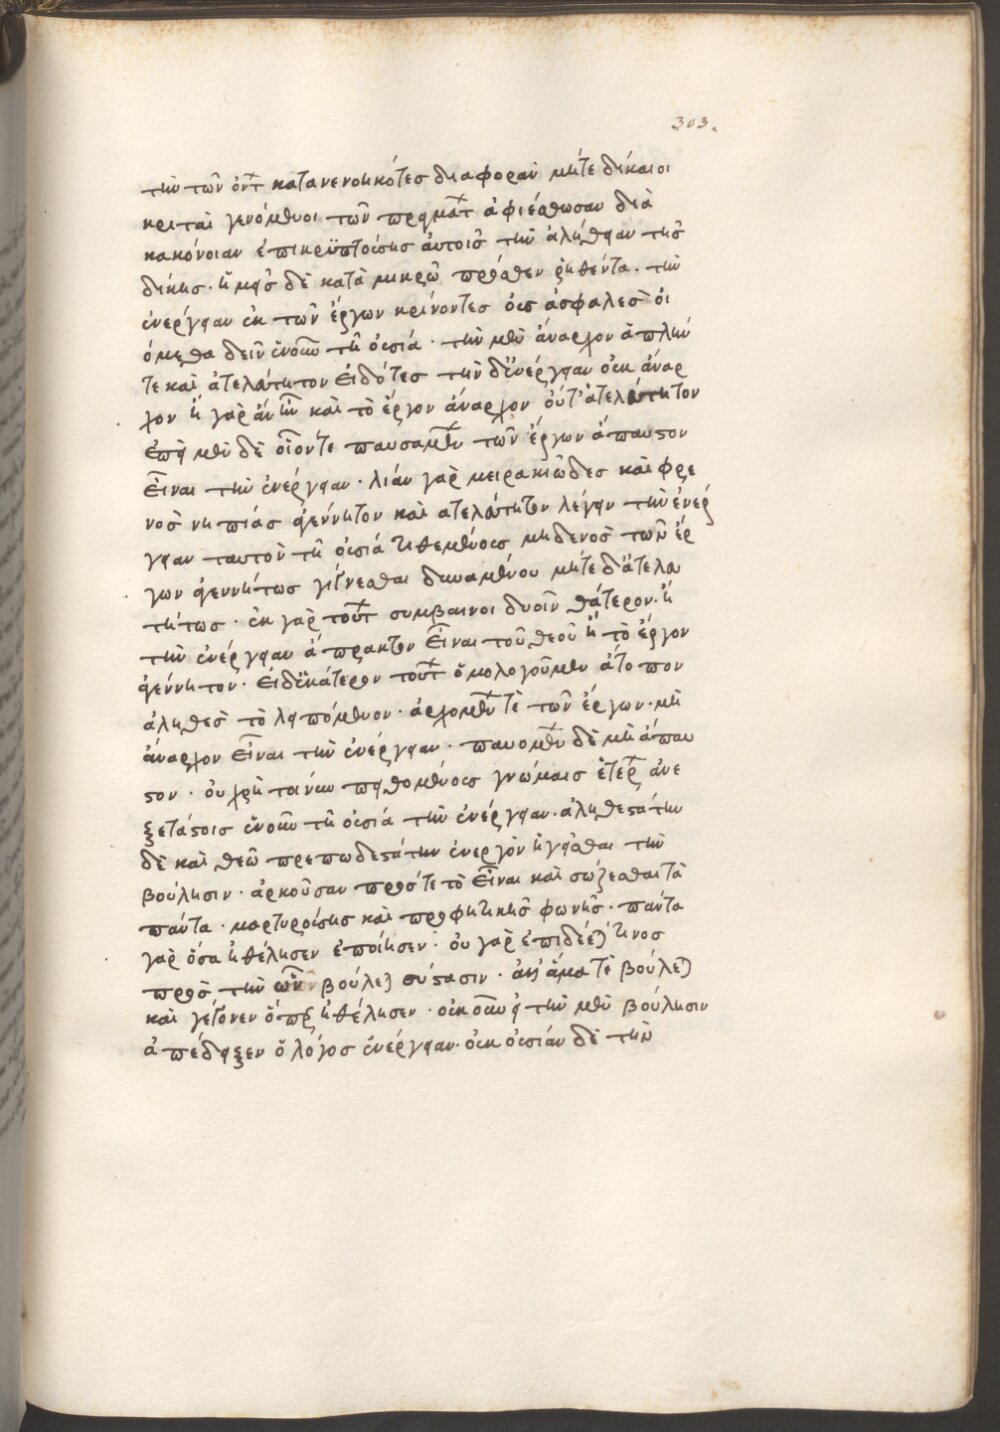 303.
τὴν τῶν ὄντ κατανενοηκότες διαφορὰν μήτε δίκαιοι
κριταὶ γενόμενοι τῶν πραγμάτ ἀφιέσθωσαν διὰ
κακόνοιαν ἐπικρυπτούσης αὐτοῖς τὴν ἀλήθειαν τῆς
δίκης· ἡμεῖς δὲ κατὰ μικρῶ πρόσθεν ῥηθέντα· τὴν
ἐνέργειαν ἐκ τῶν ἔργων κρίνοντες οὐκ ἀσφαλὲς οἰ
όμεθα δεῖν ἑνοῦν τῆ οὐσία· τὴν μὲν ἄναρχον ἁπλήν
τε καὶ ἀτελεύτητον εἰδότες τὴν δ' ἐνέργειαν οὐκ ἄναρ
χον ἢ γὰρ ἂν ἦν καὶ τὸ ἔργον ἄναρχον οὔτ' ἀτελεύτητον
ἐπεὶ μὲν δὲ οἷόν τε παυσαμένων τῶν ἔργων ἄπαυστον
εἶναι τὴν ἐνέργειαν· λίαν γὰρ μειρακιῶδες καὶ φρε
νὸς νηπίας ἀγέννητον καὶ ατελεύτητον λέγειν τὴν ἐνέρ
γειαν ταυτὸν τῆ οὐσία τιθεμένους μηδενὸς τῶν ἔρ
γων ἀγεννήτως γίγνεσθαι δυναμένου μήτε δ' ἀτελευ
τήτως· ἐκ γὰρ τούτ συμβαίνοι δυοῖν θάτερον· ἢ
τὴν ἐνέργειαν ἄπρακτον εἶναι τοῦ θεοῦ ἢ τὸ ἔργον
ἀγέννητον· εἰ δ' ἑκάτερον τούτ ὁμολογοῦμεν ἄτοπον
ἀληθὲς τὸ λειπόμενον· ἀρχομένων τὲ τῶν ἔργων· μὴ
ἄναρχον εἶναι τὴν ἐνέργειαν· παυομένων δὲ μὴ ἄπαυ
στον· οὐ χρὴ τοίνυν πειθομένους γνώμαις ἑτέρ ἀνε
ξετάστοις ἑνοῦν τῆ οὐσία τὴν ἐνέργειαν· ἀληθεστάτην
δὲ καὶ θεῶ πρεπωδεστάτην ἐνεργὸν ἡγεῖσθαι τὴν
βούλησιν· ἀρκοῦσαν πρός τε τὸ εἶναι καὶ σώζεσθαι τὰ
πάντα· μαρτυρούσης καὶ προφητικῆς φωνῆς· πάντα
γὰρ ὅσα ἠθέλησεν ἐποίησεν· οὐ γὰρ ἐπιδέεται τινὸς
πρὸς τὴν ὧν βούλεται σύστασιν· ἀλλ' ἅμα τὲ βούλεται
καὶ γέγονεν ὅπερ ἠθέλησεν· οὐκοῦν εἰ τὴν μὲν βούλησιν
ἀπέδειξεν ὁ λόγος ἐνέργειαν· οὐκ οὐσίαν δὲ τὴν